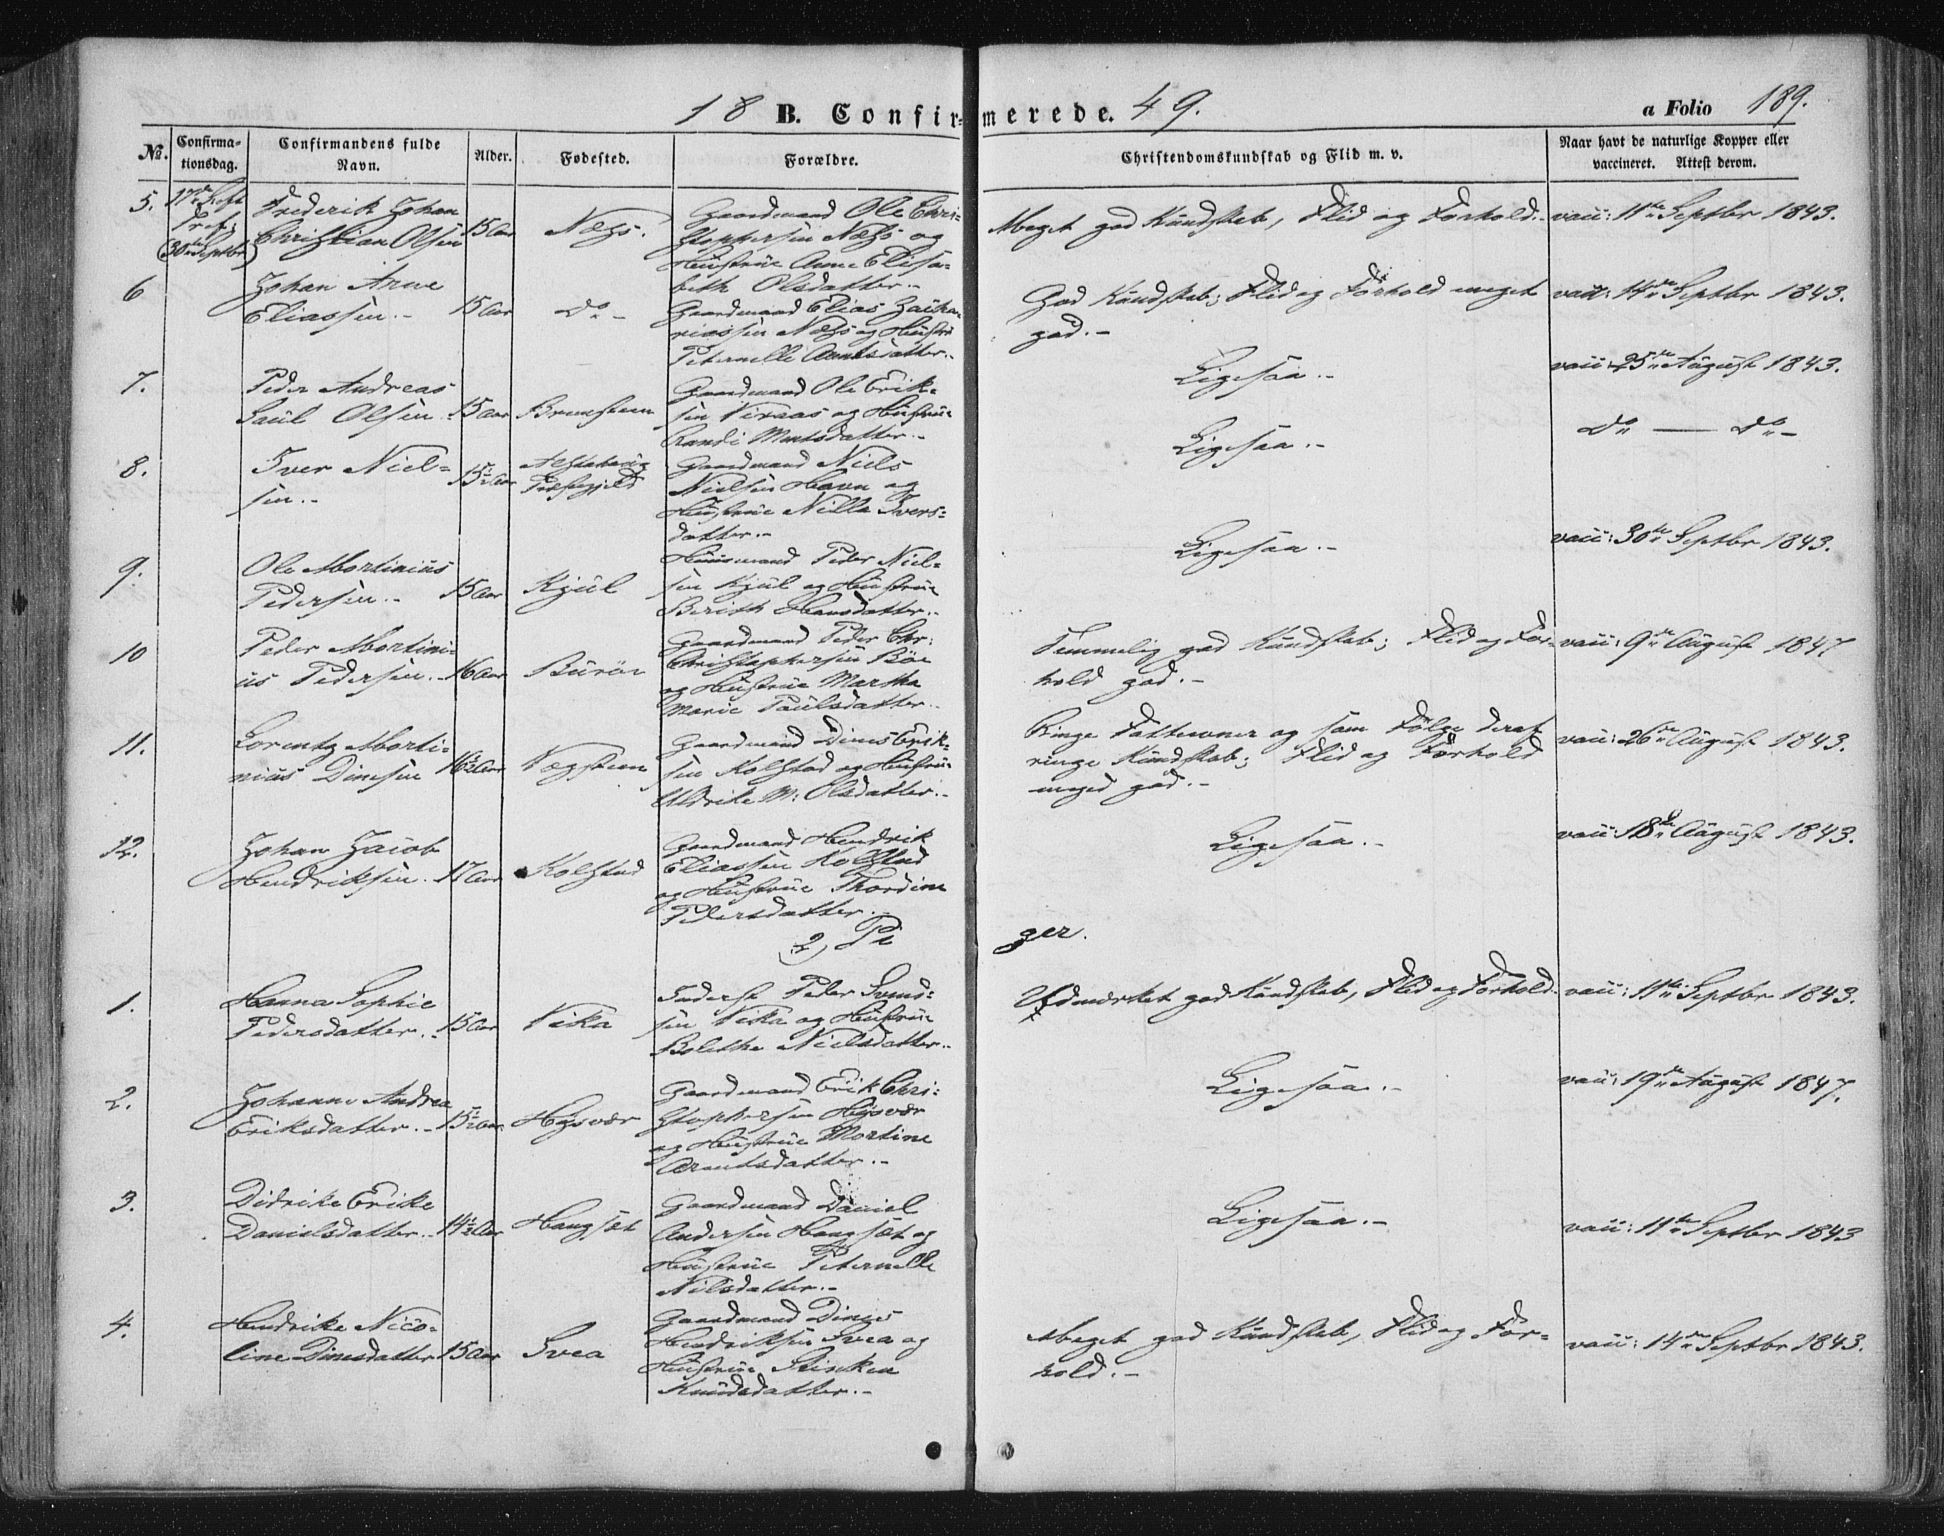 18 B. Confirmerede. 49.
a Folio 189.
No. Confirmationsdag. Confirmandens fulde Navn. Alder. Fødested. Forældre. Christendomskundskab og Flid m. v. Naar havt de naturlige Kopper eller vaccineret. Attest derom.
5. 17de Sept Præf: (30te Septbr)
Frederik Johan
Christian Olsen
15 Aar
Næss.
Gaardmand Ole Chri-
stophersen Næss og
Hustrue Anne Elisa-
beth Olsdatter.-
Meget god Kundskab, Flid og Forhold.-
vacc: 11te Septbr 1843.
6
Johan Arne
Eliassen.-
15 Aar
Do -
Gaardmand Elias Zacha-
riassen Næss og Hustru
Peternelle Arntsdatter.-
God Kundskab; Flid og Forhold meget
god.-
vacc: 14de Septbr 1843.
7.
Peder Andreas
Paul Olsen
15 Aar
Gaardmand Ole Erik-
sen Viraas og Hustrue
Randi
Ligesaa.-
vacc: 25de August 1843.
8.
Iver Niel-
sen.-
15½ Aar
Alstahoug
Præstegjeld
Gaardmand Niels
Nielsen Havn og
Hustrue Nilla Ivers-
datter.-
Ligesaa.-
Do — Do -
9.
Ole Mortinius
Pedersen.-
15 Aar
Kjul
Huusmand Peder Niel-
sen Kjul og Hustrue
Berith Hansdatter.-
Ligesaa.-
vacc: 30te Septbr 1843.
10
Peder Mortini-
us Pedersen.-
16 Aar
Burøe
Gaardmand Peder Chr:
Christophersen Bøe
og Hustrue Martha
Marie Paulsdatter.-
Temmelig god Kundskab; Flid og For-
hold god.-
vacc: 9de August 1847
11.
Lorentz Morti-
nius Dinesen
16½ Aar
Vægsteen
Gaardmand Dines Erik-
sen Kolstad og Hustrue
Uldrike M: Olsdatter.-
Ringe Fatteevner og som Følge deraf
ringe Kundskab; Flid og Forhold
meged god.-
vacc: 26de August 1843.
12.
Johan Jacob
Hendriksen.
17 Aar
Kolstad
Gaardmand Hendrik
Eliassen Kolstad
og Hustrue Thordine
Pedersdatter.-
Ligesaa.-
vacc: 18de August 1843.
2, Piger.
1.
Hanna Sophie
Pedersdatter.-
15 Aar
Vika
Inderst Peder Svend-
sen Vika og Hustrue
Bolethe Nielsdatter.-
Udmærket god Kundskab, Flid og Forhold.
vacc: 11te Septbr 1843.
2.
Johanne Andrea
Eriksdatter.-
15½ Aar
Hysvær
Gaardmand Erik Chri-
stophersen Hysvær
og Hustrue Mortine
Arentsdatter.-
Ligesaa.-
vacc: 19de August 1847.
3.
Didrike Erike
Danielsdatter.-
14½ Aar
Haugsæt
Gaardmand Daniel
Andersen Haugsæt og
Hustrue Peternelle
Nilsdatter.-
Ligesaa.-
vacc: 11te Septbr 1843
4.
Hendrike Nico-
line Dinesdatter
15 Aar
Svea
Gaardmand Dines
Hendriksen Svea og
Hustrue
Knudsdatter.-
Meget god Kundskab, Flid og For-
hold.-
vacc: 14de Septbr 1843.